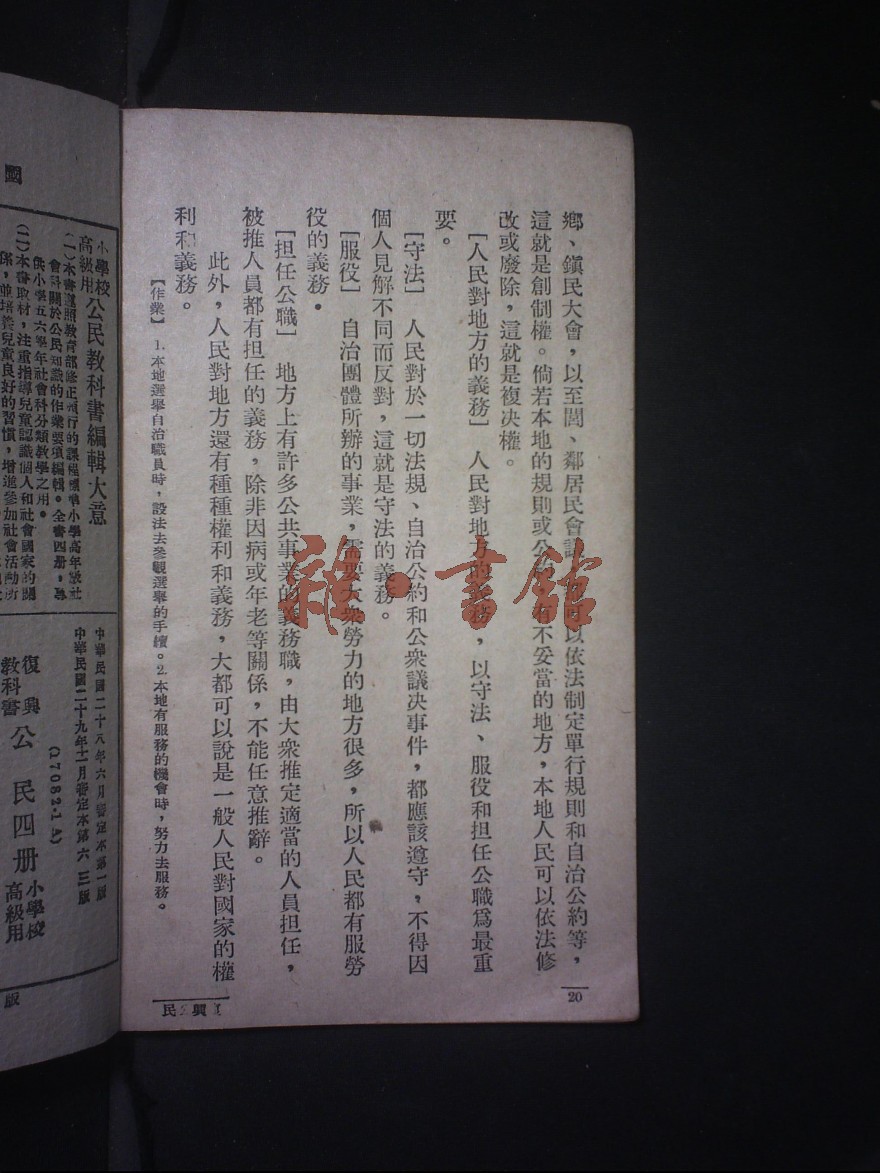 鄉、鎮民大會，以至閭、鄰居民會議，可以依法制定單行規則和自治公約等，
這就是創制權。倘若本地的規則或公約有不妥當的地方，本地人民可以依法修
改或廢除，這就是複決權。
【人民對地方的義務】 人民對地方的義務，以守法、服役和担任公職爲最重
要。
【守法】 人民對於一切法規、自治公約和公衆議決事件，都應該遵守，不得因
個人見解不同而反對，這就是守法的義務。
【服役】 自治團體所辦的事業，需要大衆勞力的地方很多，所以人民都有服勞
役的義務。
【担任公職】 地方上有許多公共事業的義務職，由大衆推定適當的人員担任，
被推人員都有担任的義務，除非因病或年老等關係，不能任意推辭。
此外，人民對地方還有種種權利和義務，大都可以說是一般人民對國家的權
利和義務。
【作業】 1.本地選舉自治職員時，設法去參觀選舉的手續。2.本地有服務的機會時，努力去服務。
20
民 興
雜·書館
國
小學校
高級用公民教科書編輯大意
(一)本書遵照教育部修正頒行的課程標準小學高年級社
會計關於公民知識的作業要項編輯。全書四册，爲
供小學五六學年社會科分類教學之用。
(二)本書取材，注重指導兒童認識個人和社會國家的關
係，並培養兒童良好的習慣，增進參加社會活動
中華民國二十八年六月審定本第一版
中華民國二十九年十二月審定本第六三版
(17082·1A)
復興
教科書 公民四册 小學校
高級用
版